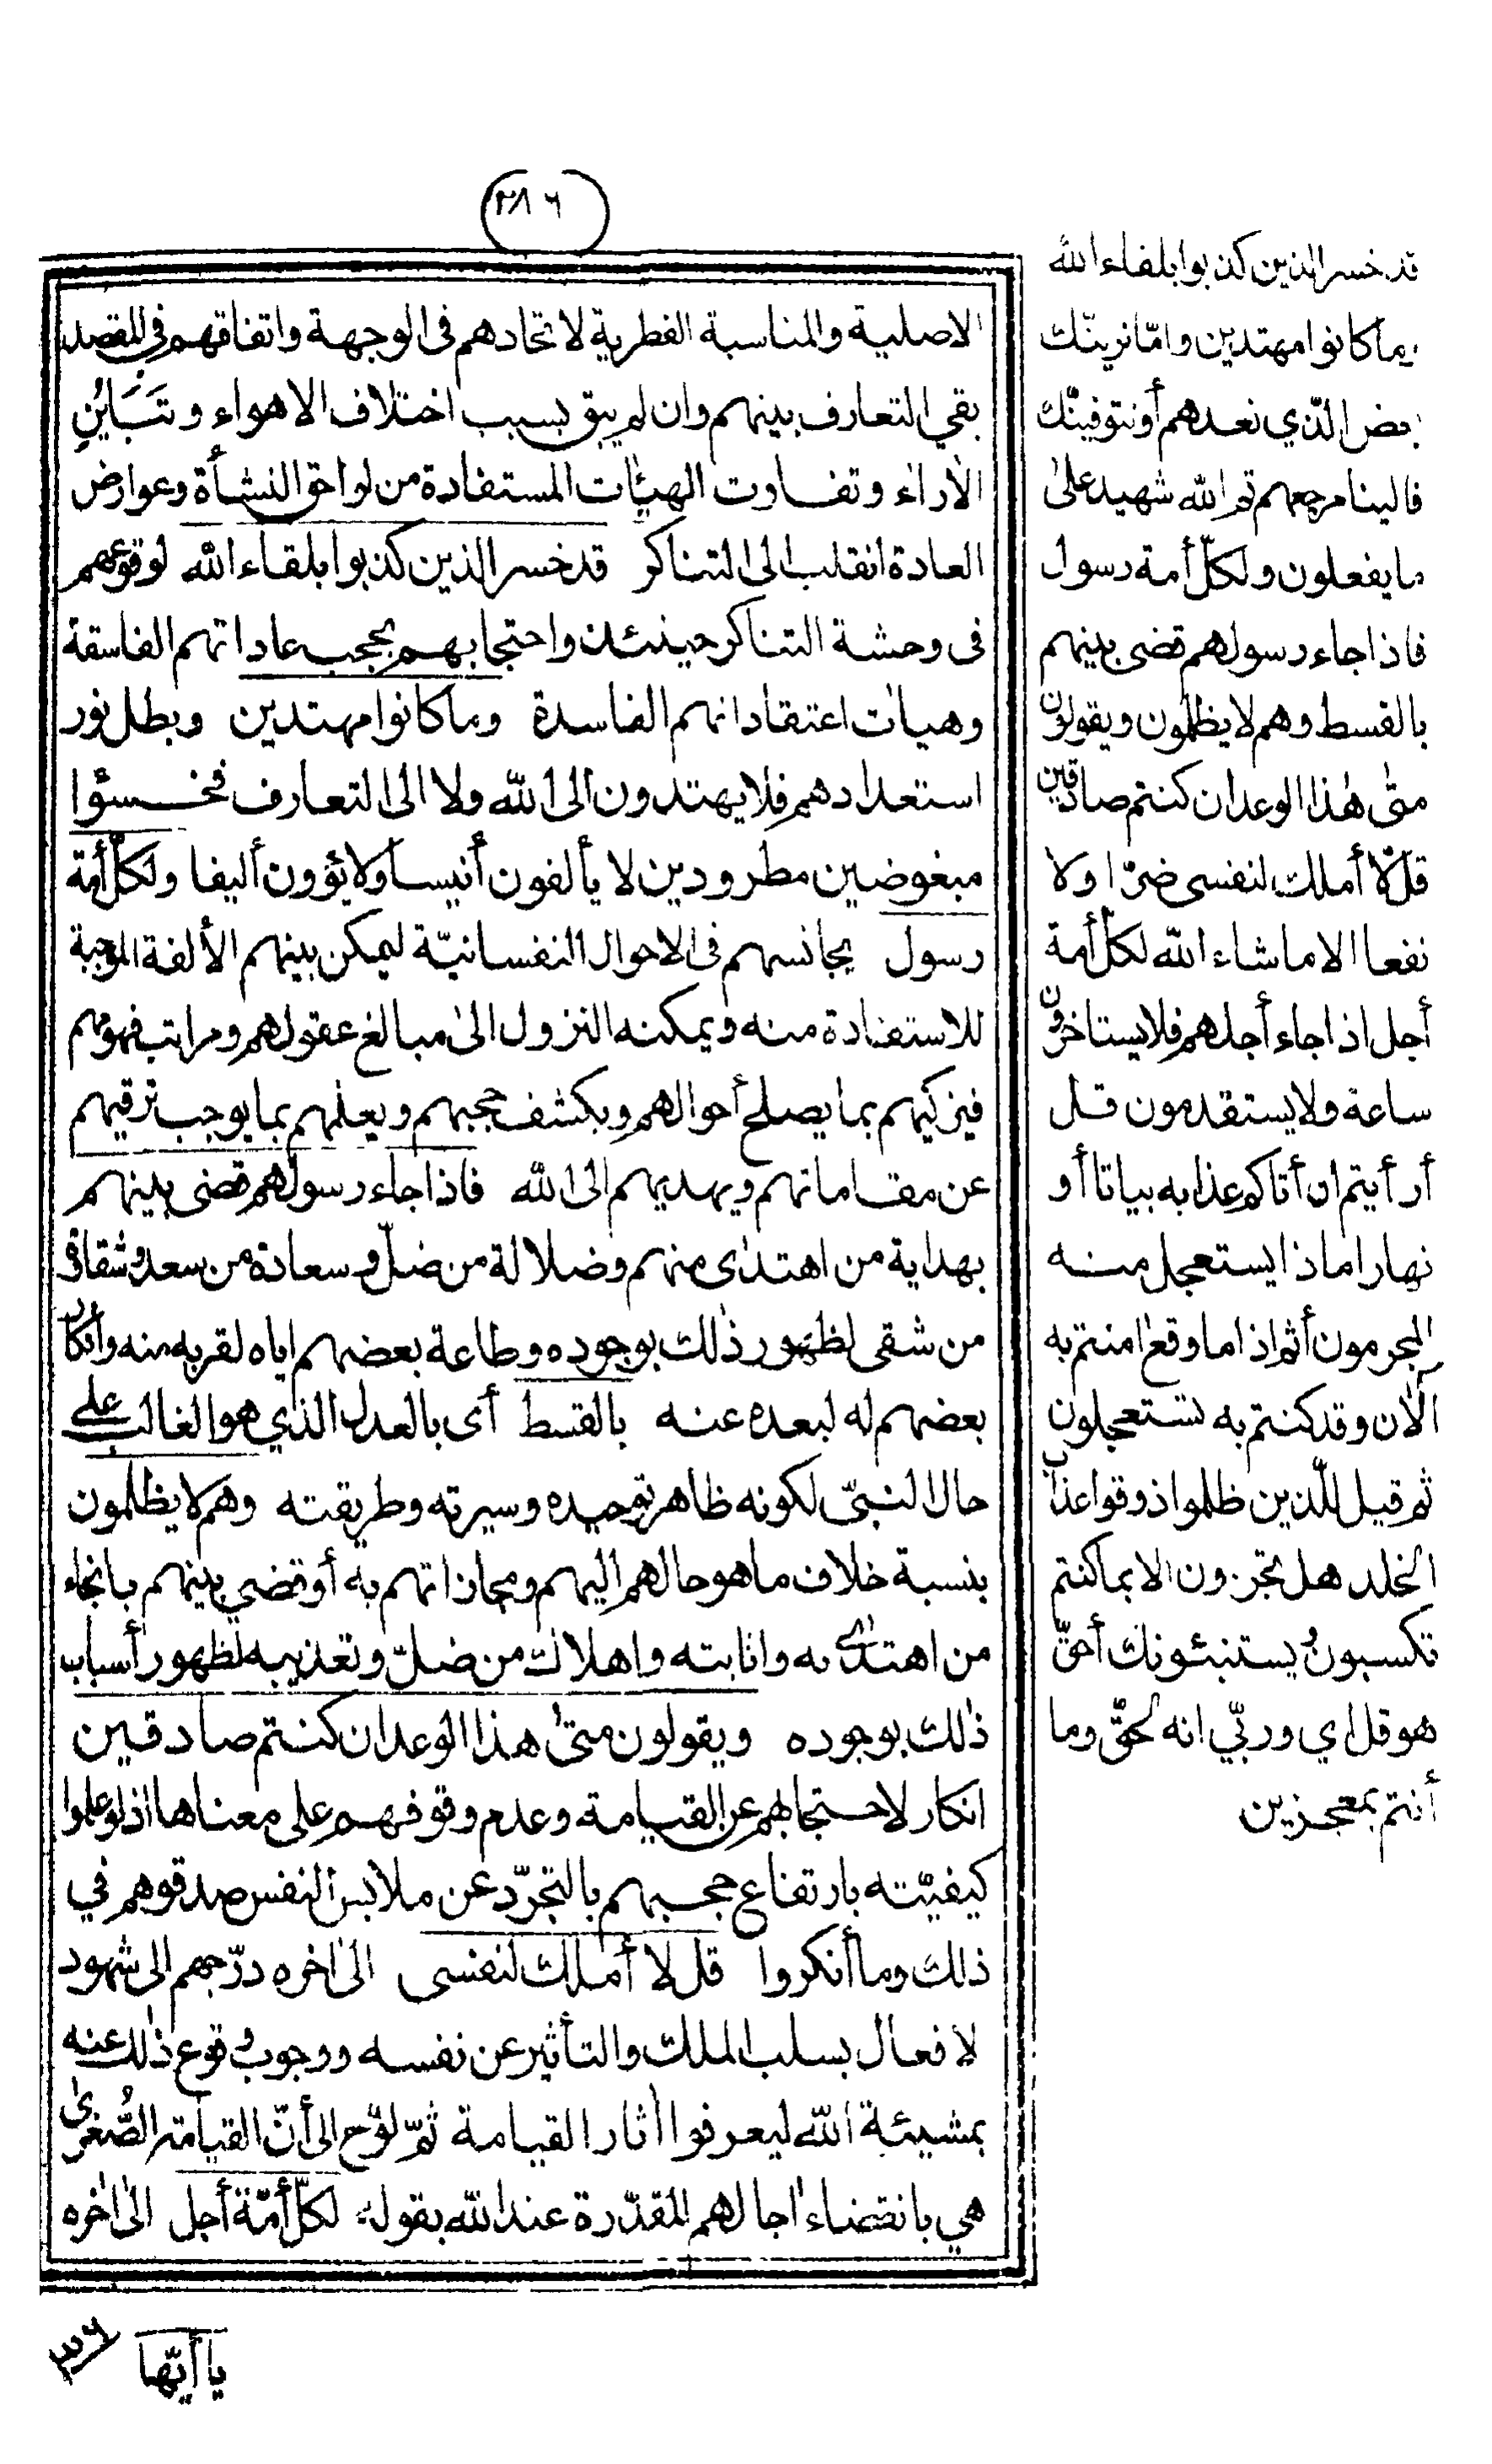 ٢٨٦
قد خسر الذين كذبوا بلقاء الله
وما كانوا مهتدين وامّا نرينّك
بعض الّذي نعدهم أو نتوفينّك
فالينا مرجعهم ثم الله شهيد على
ما يفعلون ولكلّ أمة رسول
فاذا جاء رسولهم قضى بينهم
بالقسط وهم لا يظلمون ويقولون
متى هذا الوعد ان كنتم صادقين
قل لّا أملك لنفسى ضرّا ولا
نفعا الا ما شاء الله لكل أمة
أجل اذا جاء أجلهم فلا يستاخرون
ساعة ولا يستقدمون قل
أرأيتم ان أتاكم عذابه بياتا أو
نهارا ماذا يستعجل منه
المجرمون أثم اذا ما وقع امنتم به
آلأن وقد كنتم به تستعجلون
ثم قيل للّذين ظلموا ذوقوا عذاب
الخلد هل تجزون الا بما كنتم
تكسبون ويستنبئونك أحقّ
هو قل اي وربّي انه لحقّ وما
أنتم بمعجزين
الاصلية والمناسبة الفطرية لاتحادهم فى الوجهة واتفاقهم في المقصد
بقي التعارف بينهم وان لم يبق بسبب اختلاف الاهواء وتَبَايُنِ
الأراء وتفاوت الهيئات المستفادة من لواحق النشأة وعوارض
العادة انقلب الى التناكر قد خسر الذين كذبوا بلقاء الله لوقوعهم
فى وحشة التناكر حينئذ واحتجابهم بحجب عاداتهم الفاسقة
وهيات اعتقاداتهم الفاسدة وما كانوا مهتدين وبطل نور
استعدادهم فلا يهتدون الى الله ولا الى التعارف فخسؤا
مبغوضين مطرودين لا يألفون أنيسا ولا يؤون أليفا ولكلّ أمة
رسول يجانسهم فى الاحوال النفسانيّة ليمكن بينهم الألفة الموجبة
للاستفادة منه ويمكنه النزول الى مبالغ عقولهم ومراتب فهومهم
فيزكيهم بما يصلح أحوالهم ويكشف حجبهم ويعلمهم بما يوجب ترقيهم
عن مقاماتهم ويهديهم الى الله فاذا جاء رسولهم قضى بينهم
بهداية من اهتدى منهم وضلالة من ضلّ وسعادة من سعد وشقاوة
من شقى لظهور ذلك بوجوده وطاعة بعضهم اياه لقربه منه وانكار
بعضهم له لبعده عنه بالقسط أى بالعدل الذي هو الغالب على
حال النبيّ لكونه ظاهر توحيده وسيرته وطريقته وهم لا يظلمون
بنسبة خلاف ما هو حالهم اليهم ومجازاتهم به أو قضي بينهم بانجاء
من اهتدى به واثابته واهلاك من ضلّ وتعذيبه لظهور أسباب
ذلك بوجوده ويقولون متى هذا الوعد ان كنتم صادقين
انكار لاحتجابهم عن القيامة وعدم وقوفهم على معناها اذ لو علموا
كيفيّته بارتفاع حجبهم بالتجرّد عن ملابس النفس صدقوهم في
ذلك وما أنكروا قل لا أملك لنفسى الى اخره درّجهم الى شهود
لافعال بسلب الملك والتأثير عن نفسه ووجوب وقوع ذلك عنه
بمشيئة الله ليعرفوا أثار القيامة ثمّ لوّح الى أنّ القيامة الصُّغرى
هي بانقضاء أجالهم المقدّرة عند الله بقوله لكلّ أمّة أجل الى اخره
يا أيّها